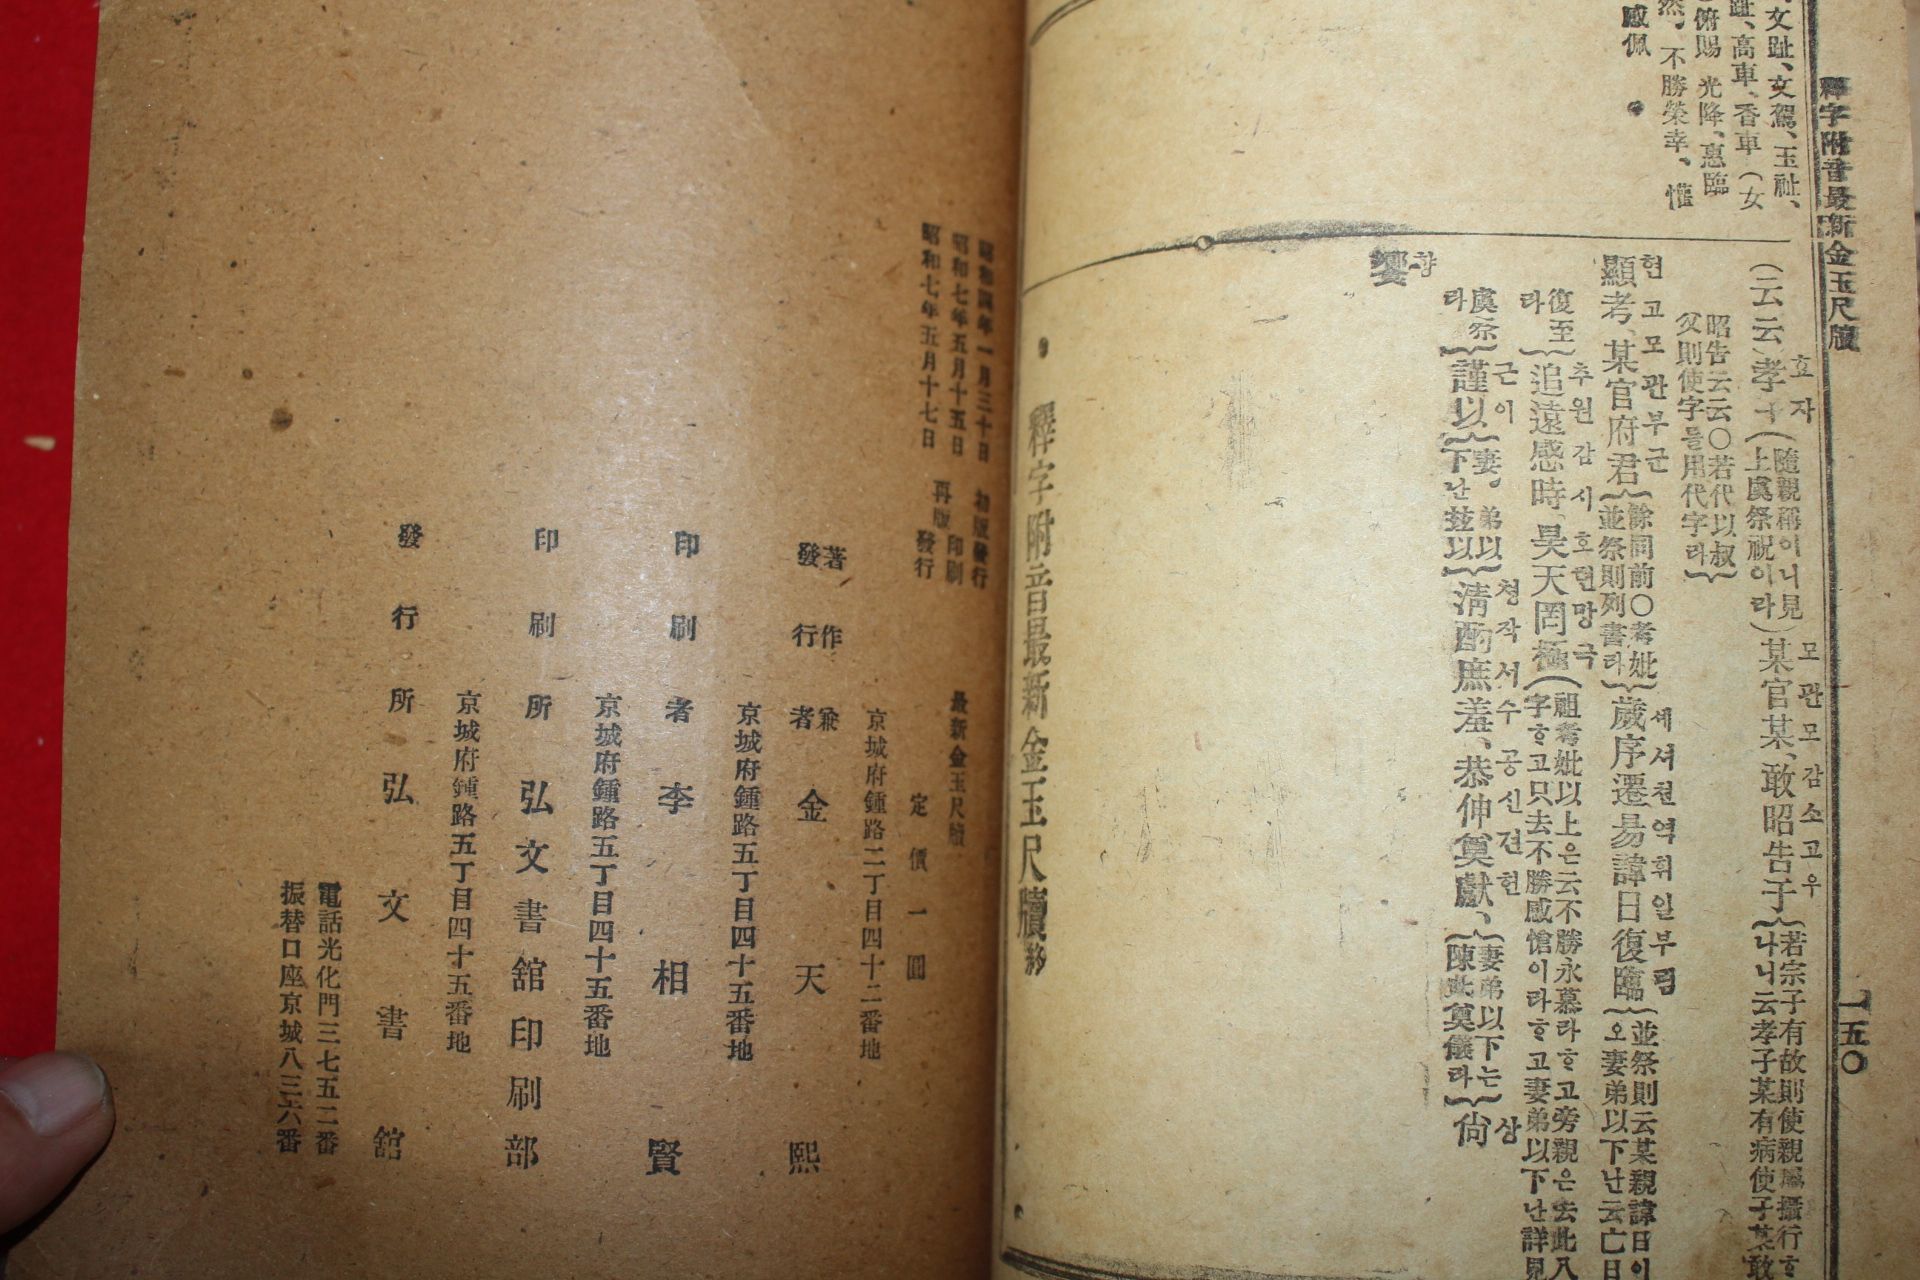 釋字附音最新金玉尺牘
一五〇
文趾、文駕、玉趾、
趾、高車、香車（女
俯賜 光降、惠臨
然、不勝榮幸、懽
感佩
효자 모관모감소고우
（云云）孝子（隨親稱이니見上虞祭祝이라）某官某、敢昭告于（若宗子有故則使親屬攝行
나니云孝子某有病使子某敢
昭告云云〇若代以叔
父則使字를用代字라）
현고모관부군 세셔천역휘일부림
顯考、某官府君（餘同前〇考妣並祭則列書라）歲序遷易諱日復臨（並祭則云某親諱日이
오妻弟以下난云亡日
復至라）追遠感時、昊天罔極（祖考妣以上은云不勝永慕라ᄒᆞ고旁親은去此八
字ᄒᆞ고只云不勝感愴이라ᄒᆞ고妻弟以下난詳見
추원감시호텬망극
虞祭라）謹以（妻弟以下난玆以）淸酌庶羞、恭伸奠獻、（妻弟以下는陳此奠儀라）尙
근이 청작서수공신견헌 상
향
饗
釋字附音最新金玉尺牘終
昭和四年一月三十日 初版發行
昭和七年五月十五日 再版印刷
昭和七年五月十七日 發行
最新金玉尺牘
定價一圓
京城府鍾路二丁目四十二番地
著作兼
發行者 金天熙
京城府鍾路五丁目四十五番地
印刷者 李相賢
京城府鍾路五丁目四十五番地
印刷所 弘文書舘印刷部
京城府鍾路五丁目四十五番地
發行所 弘文書舘
電話光化門三七五二番
振替口座京城八三六番